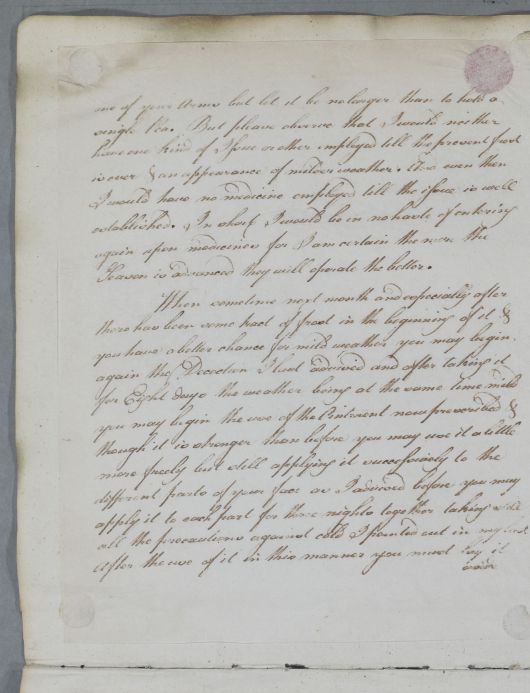 one of your Arms but let it be no larger than to hold a
single Pea. But please observe that I would neither
have one kind of Issue or other employed till the present frost
is over & an appearance of milder weather. And even then
I would have no medicine employed till the issue is well
established. In short I would be in no haste of entering
again upon medicines for I am certain the more the
Season is advanced they will operate the better.
When sometime next month and especially after
there has been some tract of frost in the beginning of it &
you have a better chance for mild weather you may begin
again the Decoction I last advised and after taking it
for Eight days the weather being at the same time mild
you may begin the use of the Ointment now prescribed &
though it is stronger than before you may use it a little
more freely but still applying it successively to the
different parts of your face as I advised before you may
apply it to each part for three nights together taking still
all the precautions against cold I pointed out in my last
After the use of it in this manner you must lay it
aside